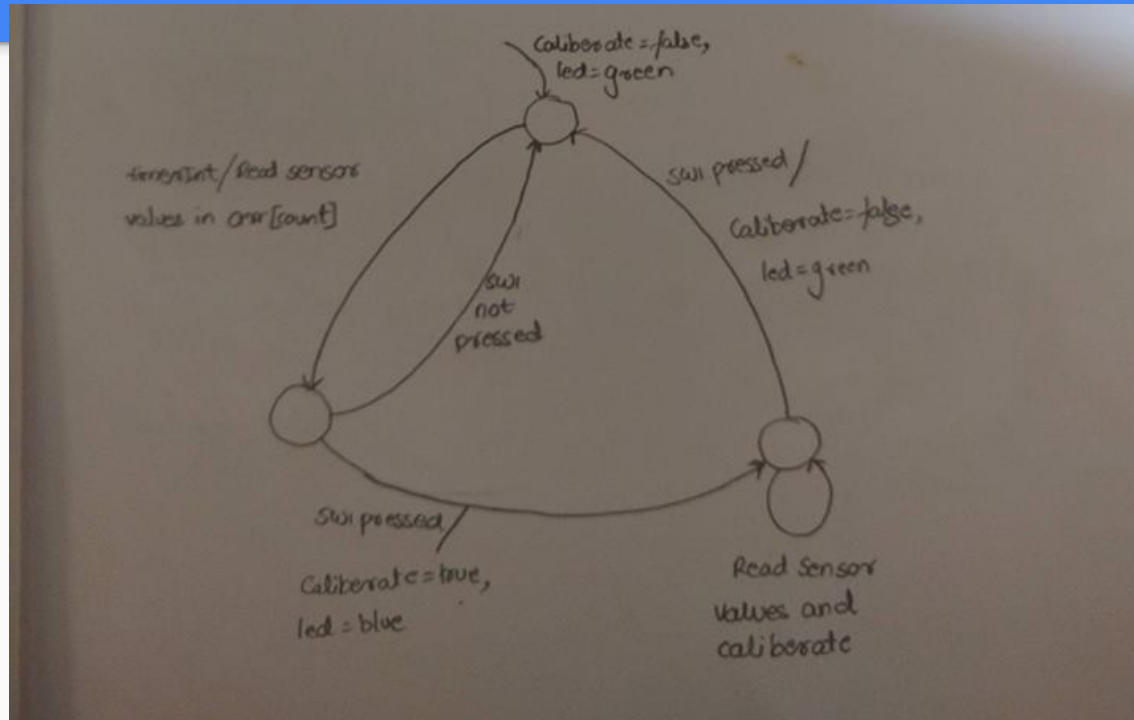 Caliberate=false,
led=green
timerInt/Read sensor
values in arr[count]
SW1 pressed/
Caliberate=false,
led=green
SW1
not
pressed
SW1 pressed/
Caliberate=true,
led=blue
Read Sensor
values and
caliberate